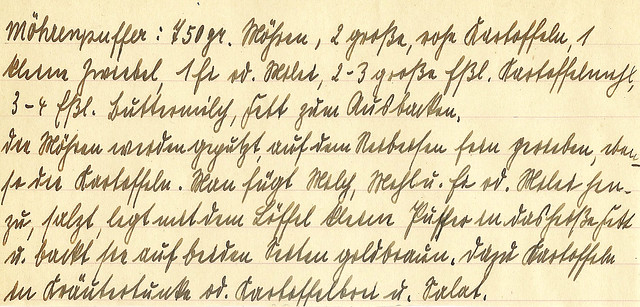 Möhrenpuffer: 750 gr. Möhren, 2 große, rohe Kartoffeln, 1
kleine Zwiebel, 1 Ei od. Milei, 2-3 große Eßl. Kartoffelmehl,
3-4 Eßl. Buttermilch, Fett zum Ausbacken.
Die Möhren werden geputzt, auf dem Reibeisen fein gerieben, eben-
so die Kartoffeln. Man fügt Milch, Mehl u. Ei od. Milei hin-
zu, salzt, legt mit dem Löffel kleine Puffer in das heiße Fett
u. backt sie auf beiden Seiten goldbraun. Dazu Kartoffeln
in Kräutertunke od. Kartoffelbrei u. Salat.